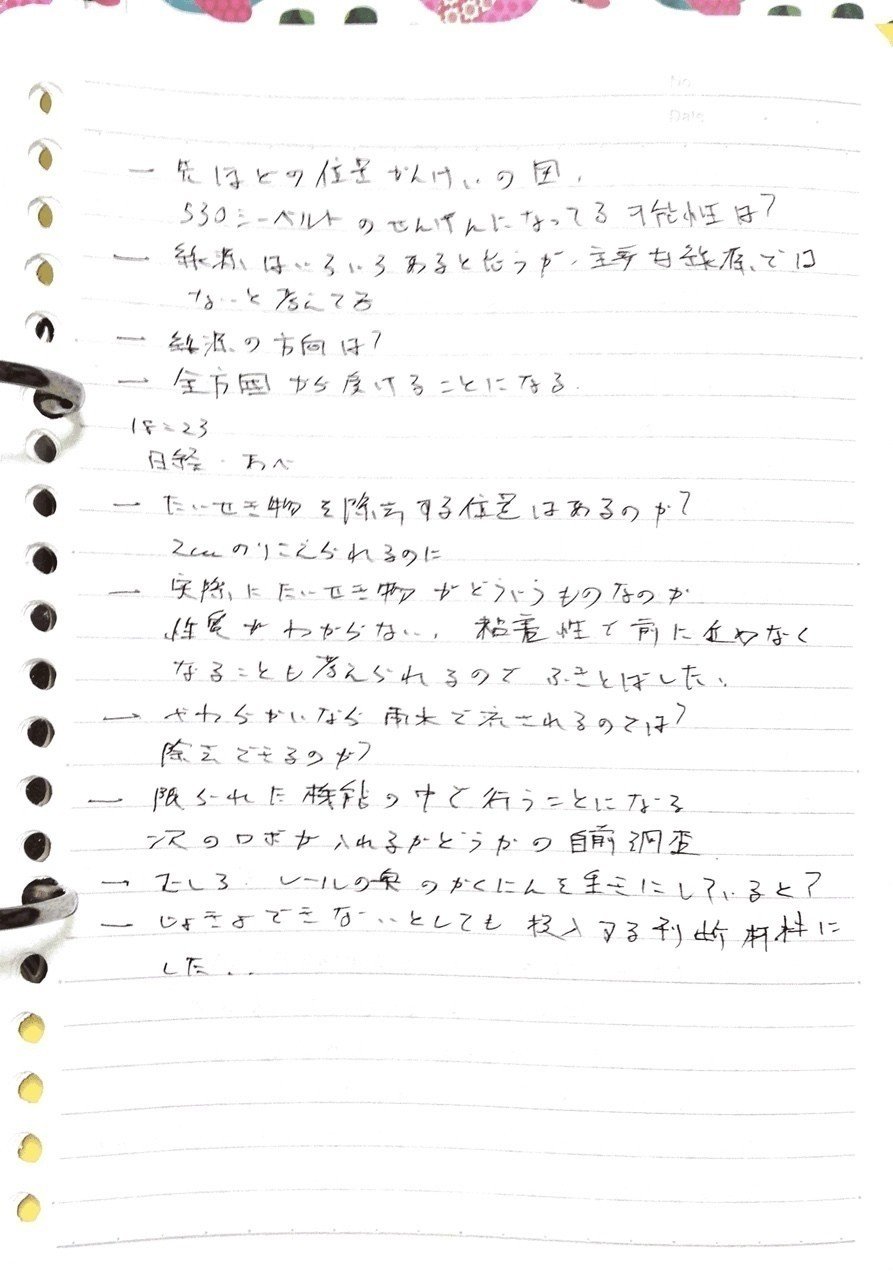 No.
Date
ー 先ほどの位置かんけいの図、
530シーベルトのせんげんになってる可能性は?
ー 線源はいろいろあると思うが、主要な線源では
ないと考えてる
ー 線源の方向は?
ー 全方囲から受けることになる。
18:23
日経・あべ
ー たいせき物を除去する位置はあるのか?
2cmのりこえられるのに
ー 実際にたいせき物がどういうものなのか
性質がわからない、粘着性で前に進めなく
なることも考えられるのでふきとばしたい、
ー やわらかいなら雨水で流されるのでは?
除去できるのか?
ー 限られた機能の中で行うことになる
次のロボが入れるかどうかの自前調査
ー むしろ、レールの奥のかくにんを重きにしていると?
ー じょきょできないとしても投入する判断材料に
したい。